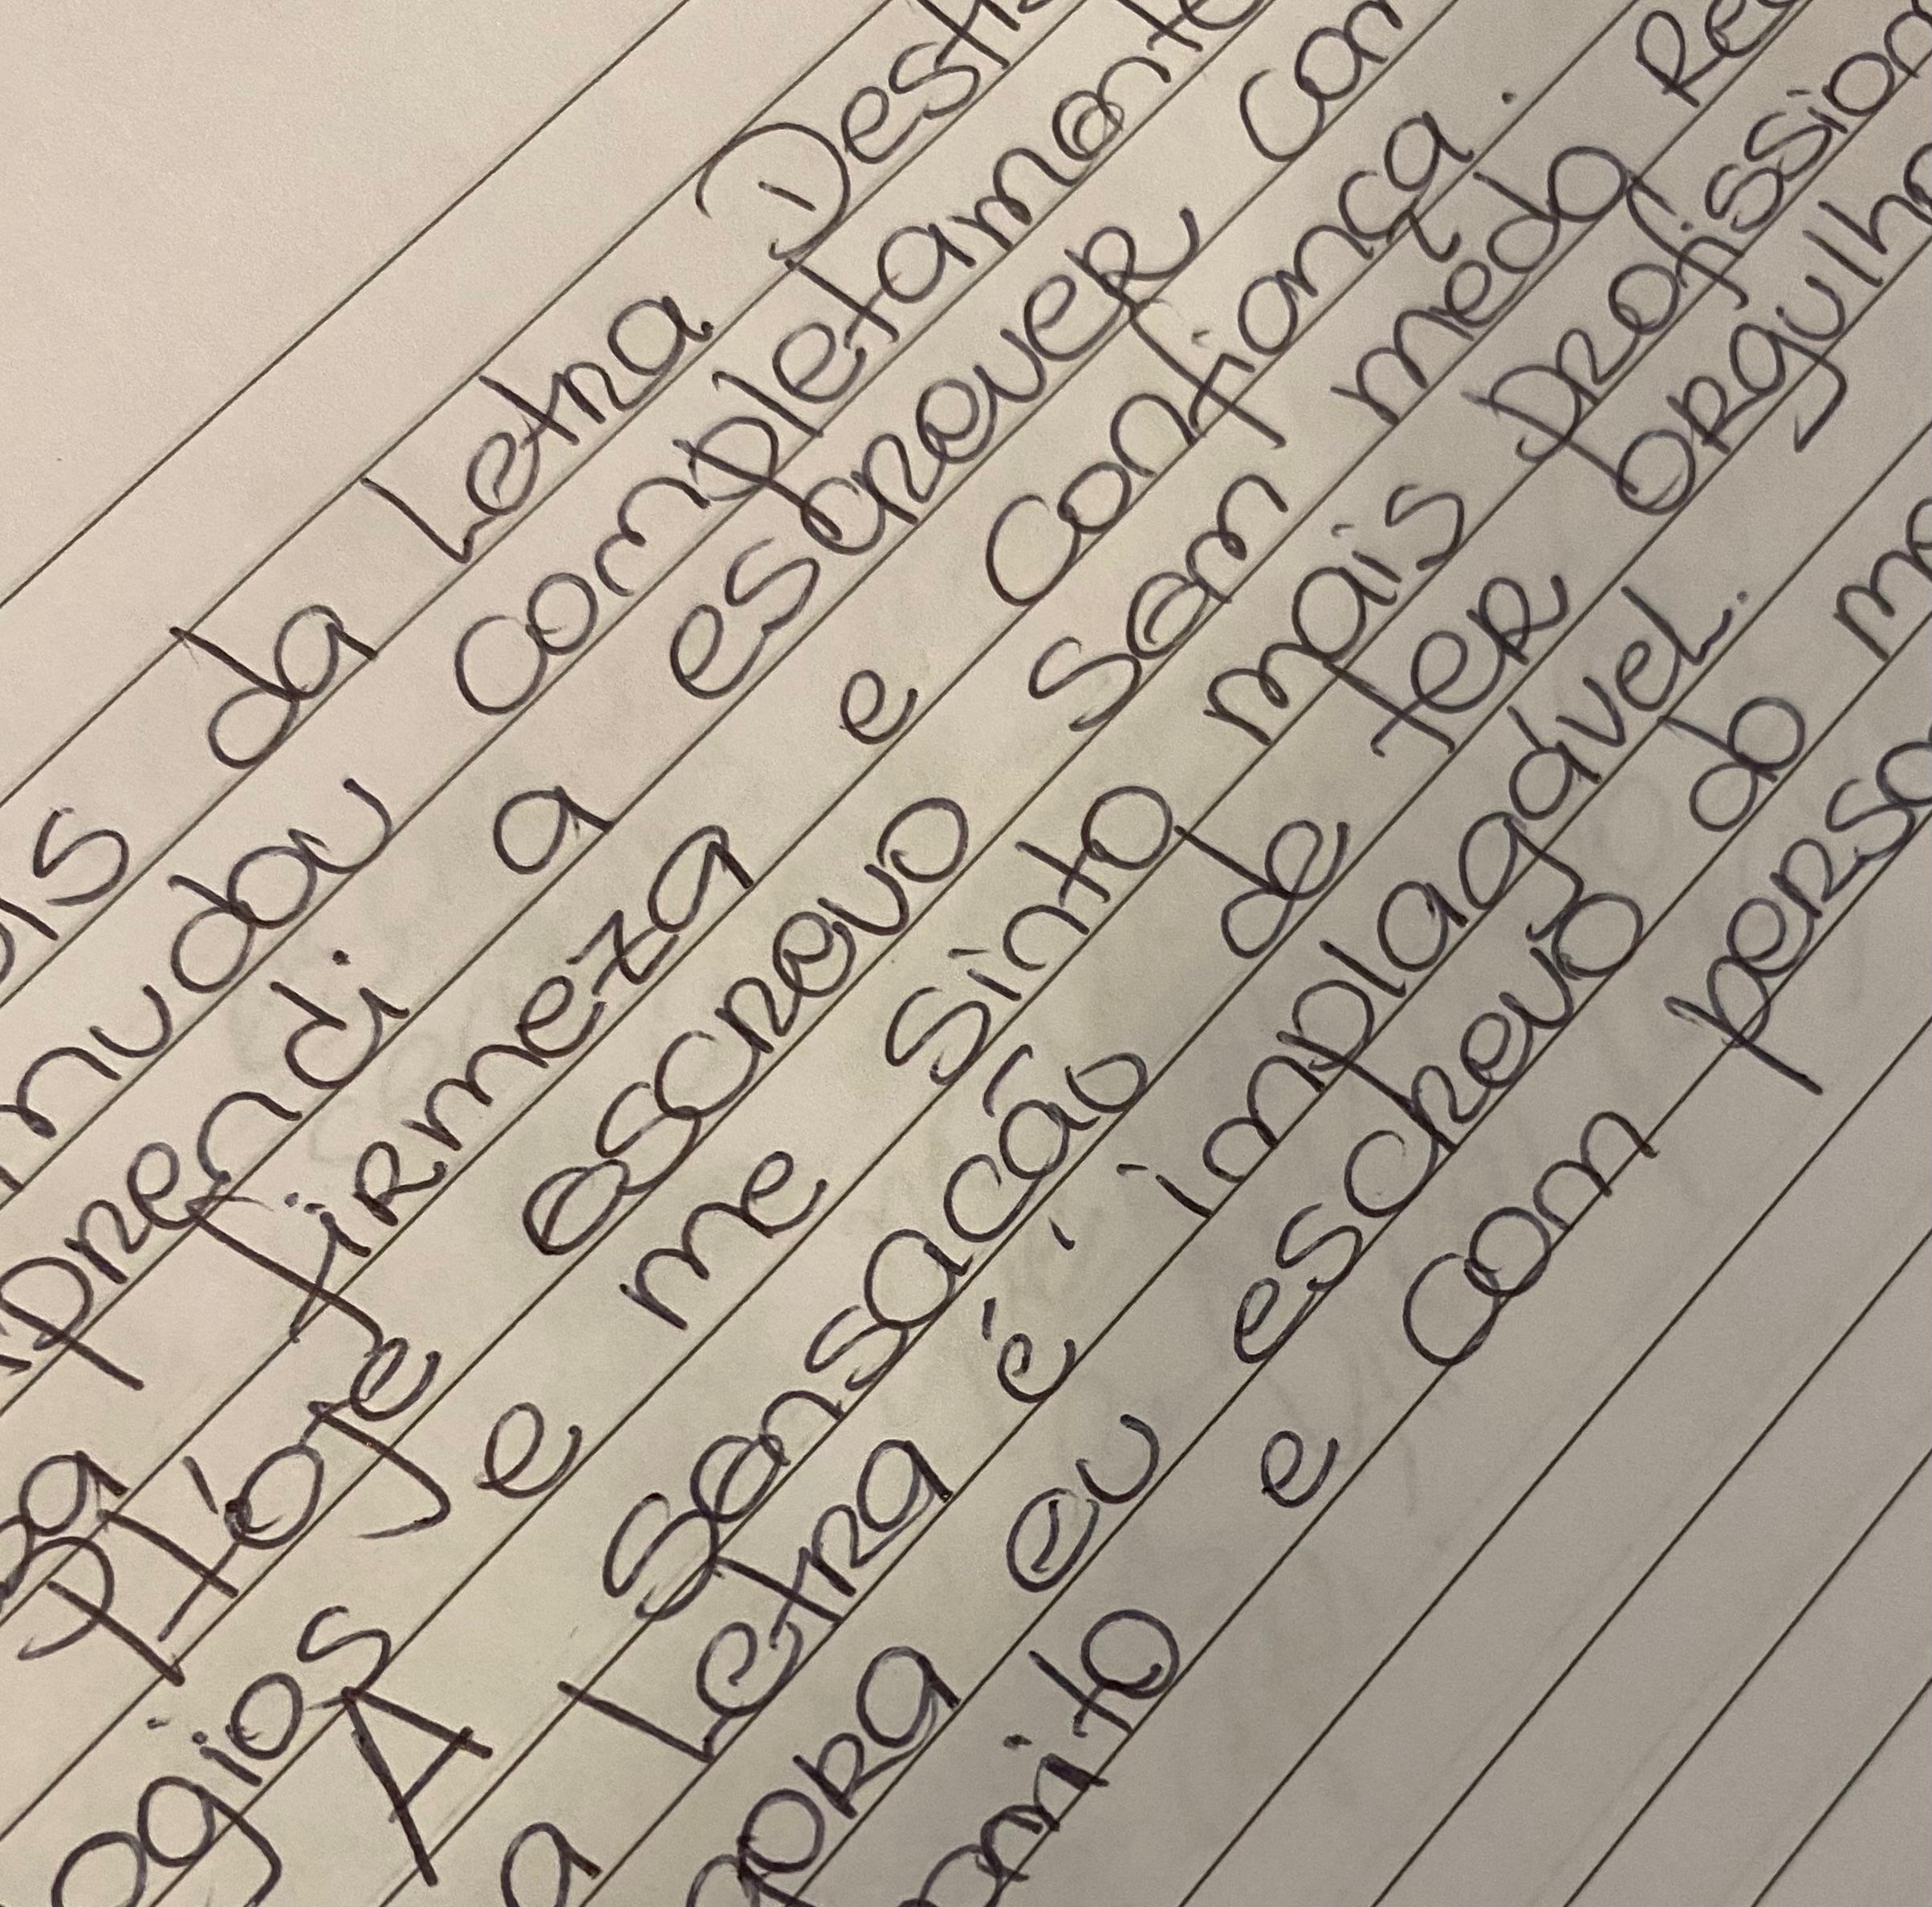 ois da Letra Dest
mudou completamente
prendi a escrever con
firmeza e confiança.
Hoje escrevo sem medo Re
ogios e me sinto mais profission
A sensacão de ter orgulh
a Letra é implagável.
gora eu escrevo do m
onito e com perso